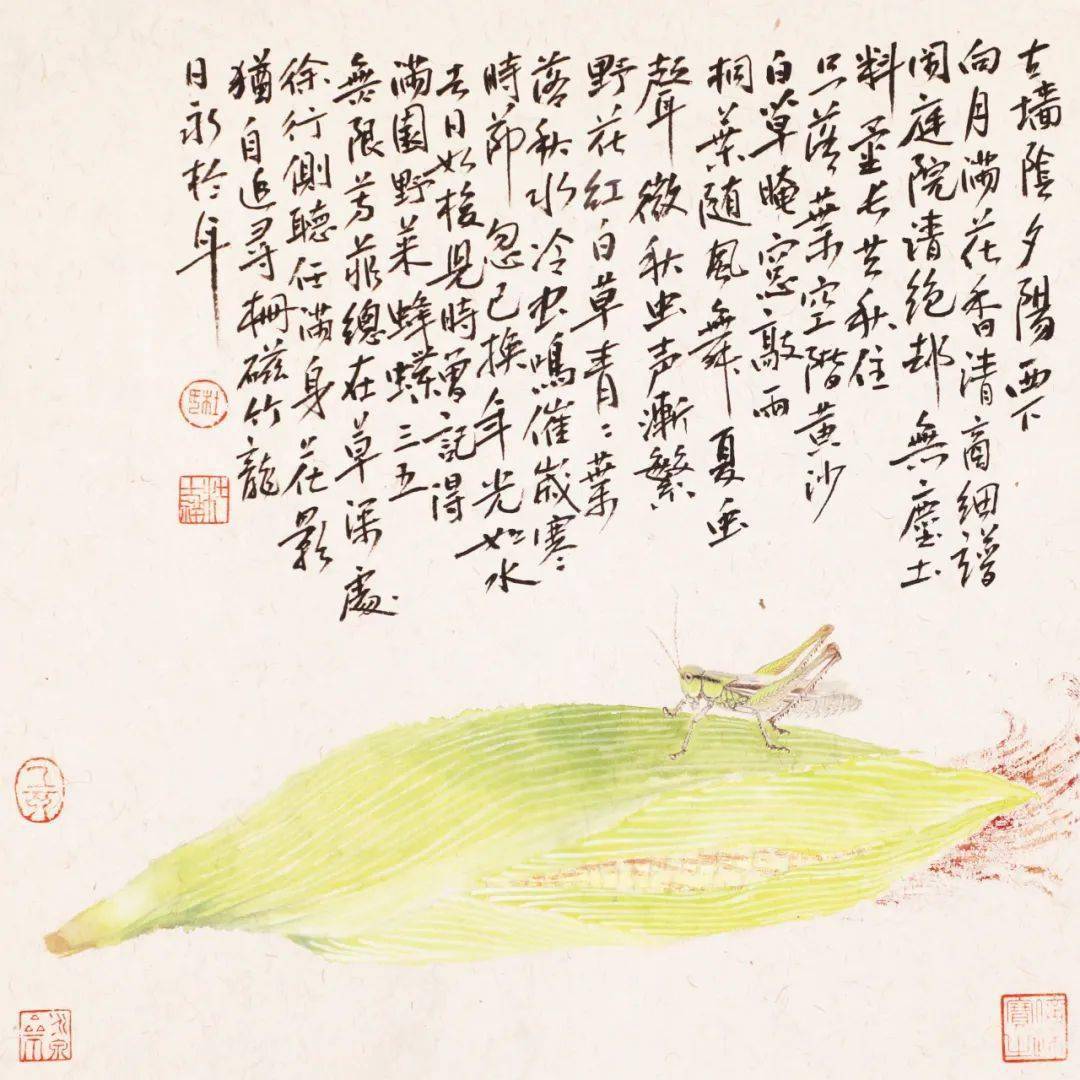 古墙阴夕陽西下
向月满花香清商细譜
闲庭院清绝却無塵土
料量長共秋住
只落葉空階黄沙
白草晻窓敲雨
桐葉随風舞夏虫
聲微秋虫声漸繁
野花紅白草青〻葉
落秋水冷虫鳴催歲寒
時節忽已換年光如水
去日如梭見時曾記得
满園野菜蜂蝶三五
無限芳菲總在草深處
徐行側聽任满身花影
猶自追尋柵磁竹龍
日永於年